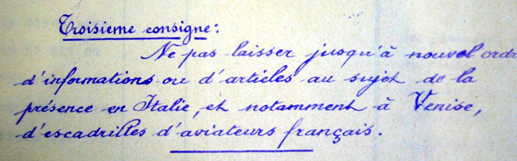 Troisieme consigne:
Ne pas laisser jusqu'à nouvel ordr
d'informations ou d'articles au sujet de la
présence en Italie, et notamment à Venise,
d'escadrilles d'aviateurs français.